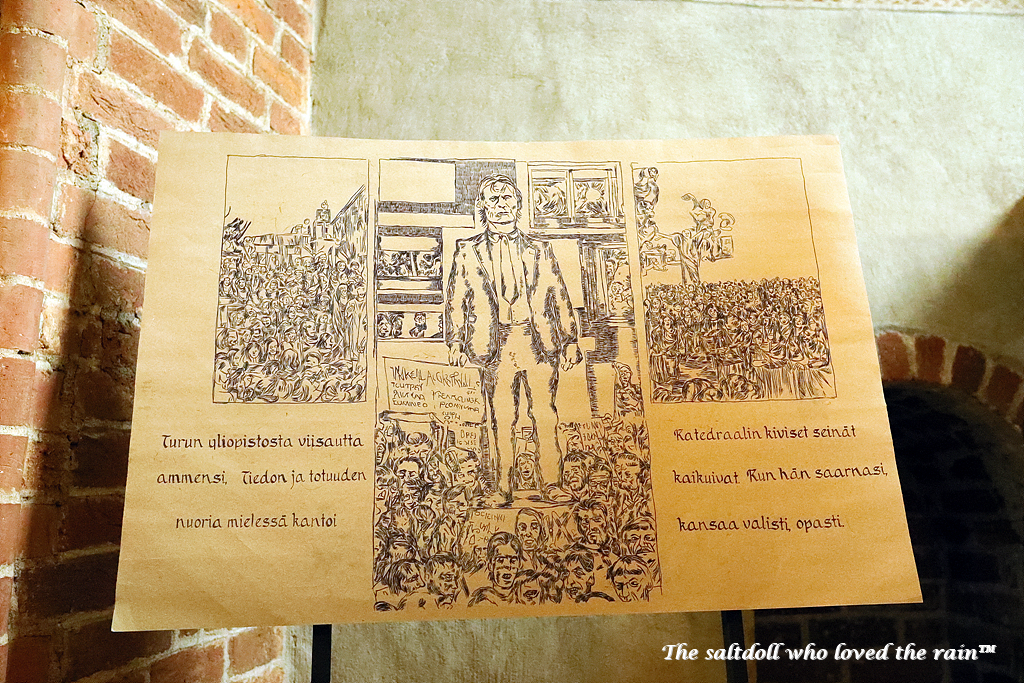 Turun yliopistosta viisautta
ammensi, Tiedon ja totuuden
nuoria mielessä kantoi
Katedraalin kiviset seinät
kaikuivat. Kun hän saarnasi,
kansaa valisti, opasti.
The saltdoll who loved the rain™